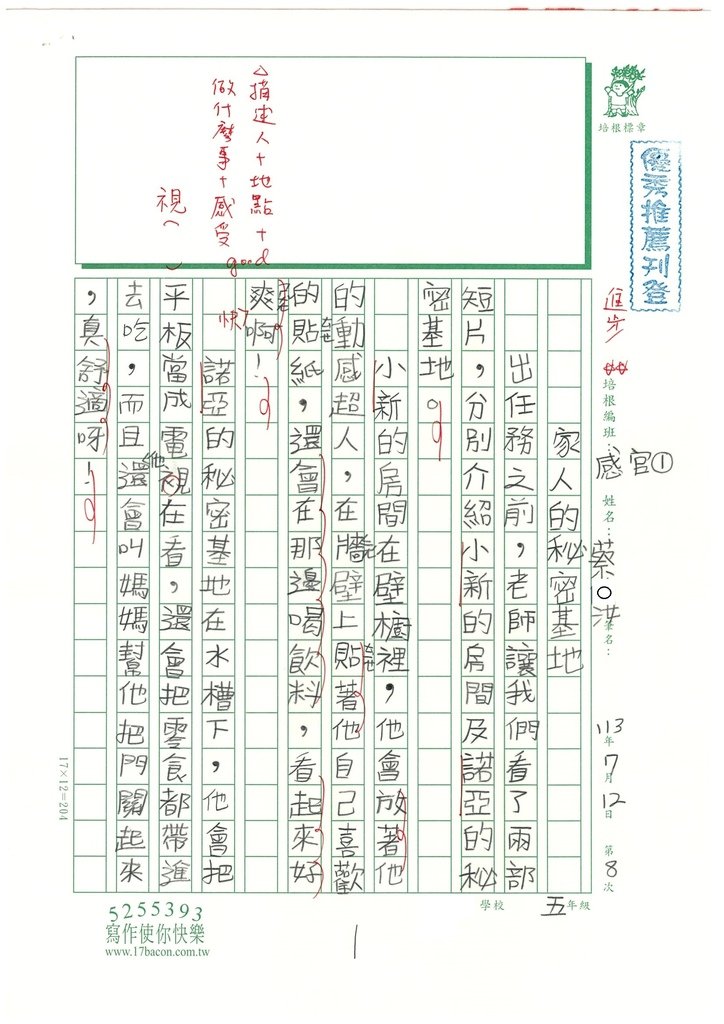 培根標章
優秀推薦刊登
進步
培根編班：感官①
姓名：蔡○洪
筆名：
113年7月12日 第8次
學校 五年級
△描述人+地點+
做什麼事+感受
good
視
家人的秘密基地
出任務之前，老師讓我們看了兩部
短片，分別介紹小新的房間及諾亞的秘
密基地。
小新的房間在壁櫥裡，他會放著他
的動感超人，在牆壁上貼著他自己喜歡
的貼紙，還會在那邊喝飲料，看起來好
爽啊！
快
諾亞的秘密基地在水槽下，他會把
平板當成電視在看，還會把零食都帶進
去吃，而且還會叫媽媽幫他把門關起來
他
，真舒適呀！
17×12=204
5255393
寫作使你快樂
www.17bacon.com.tw
1